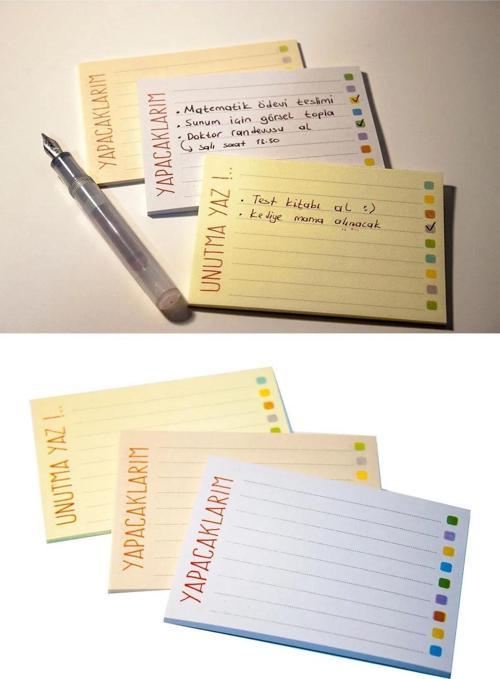 YAPACAKLARIM
YAPACAKLARIM
• Matematik ödevi teslimi
• Sunum için görsel topla
• Doktor randevusu al
↳ salı saat 13.30
UNUTMA YAZ !..
• Test kitabı al :)
• Kediye mama alınacak
UNUTMA YAZ !..
YAPACAKLARIM
YAPACAKLARIM